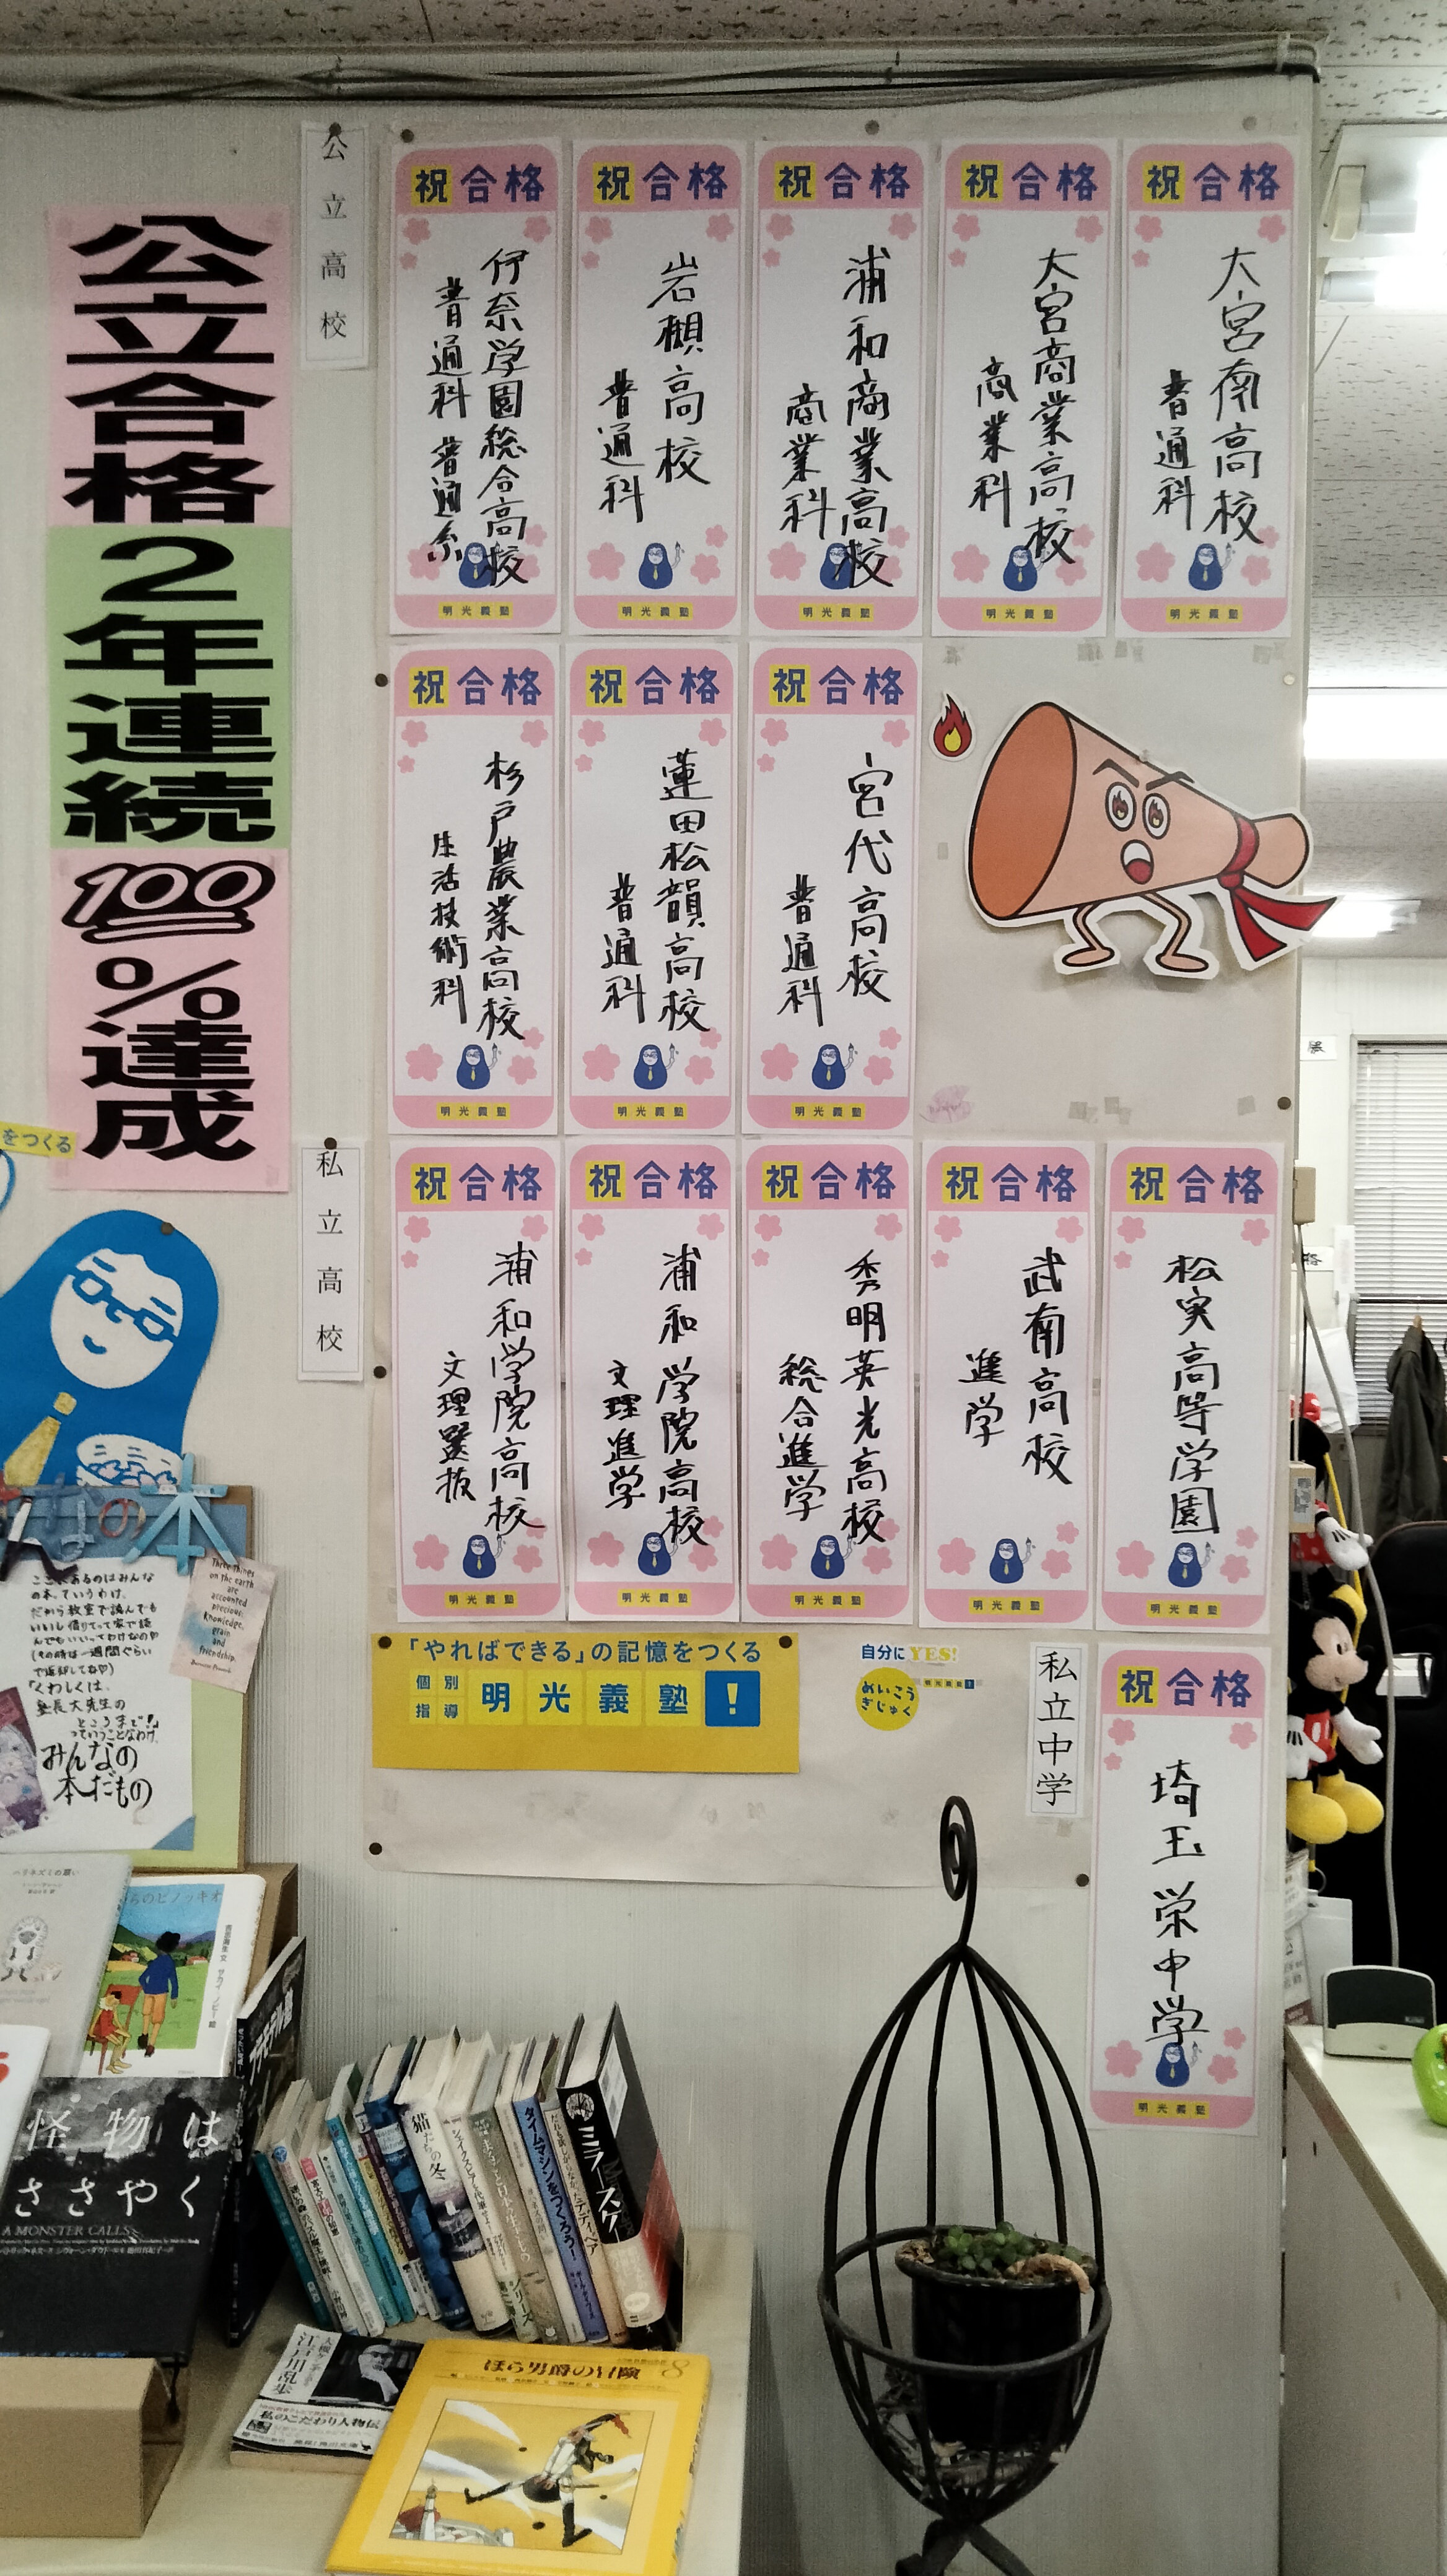 公立合格
2年連続
100%達成
公立高校
祝合格
伊奈学園総合高校
普通科 普通系
明光義塾
祝合格
岩槻高校
普通科
明光義塾
祝合格
浦和商業高校
商業科
明光義塾
祝合格
大宮商業高校
商業科
明光義塾
祝合格
大宮南高校
普通科
明光義塾
祝合格
杉戸農業高校
生活技術科
明光義塾
祝合格
蓮田松韻高校
普通科
明光義塾
祝合格
宮代高校
普通科
明光義塾
私立高校
祝合格
浦和学院高校
文理選抜
明光義塾
祝合格
浦和学院高校
文理進学
明光義塾
祝合格
秀明英光高校
総合進学
明光義塾
祝合格
武南高校
進学
明光義塾
祝合格
松実高等学園
明光義塾
「やればできる」の記憶をつくる
個別指導 明光義塾!
自分にYES!
めいこうぎじゅく
明光義塾!
私立中学
祝合格
埼玉栄中学
明光義塾
をつくる
なの本
ここにあるのはみんな
の本っていうわけ。
だから教室で読んでも
いいし借りてって家で読
んでもいいってわけなのや
(その時は一週間ぐらい
で返却してねや)
くわしくは、
塾長大先生の
ところまで!
っていうことなわけ。
みんなの
本だもの
Three things
on the earth
are
accounted
precious:
Knowledge,
grain
and
friendship.
ハリネズミの願い
らのピノッキオ
怪物は
ささやく
A MONSTER CALLS
猫たちの冬
タイムマシンをつくろう!
ミラー・スケープ
江戸川乱歩
私のこだわり人物伝
ほら男爵の冒険
8